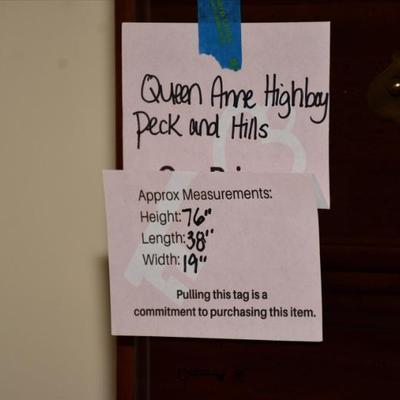 Queen Anne Highboy
Peck and Hills
Approx Measurements:
Height: 76"
Length: 38"
Width: 19"
Pulling this tag is a
commitment to purchasing this item.